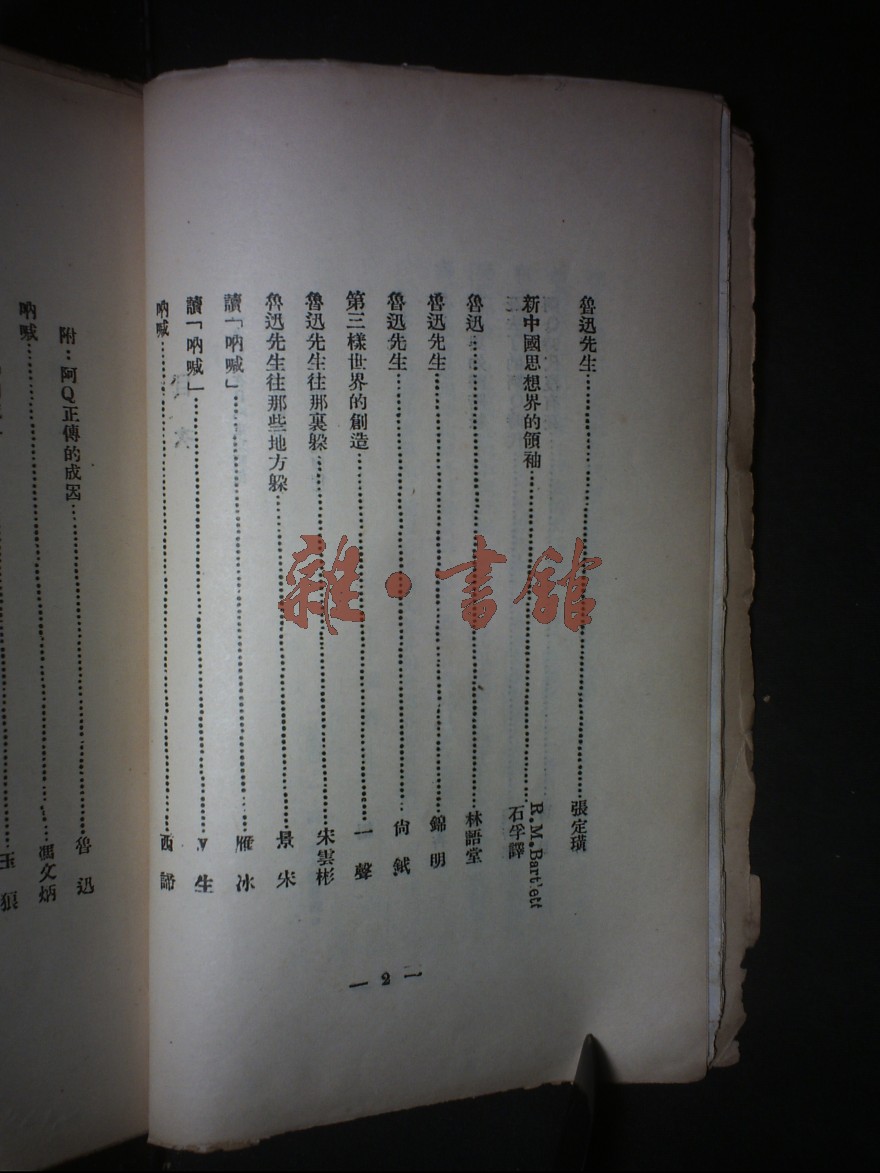 魯迅先生……張定璜
新中國思想界的領袖……R.M.Bart'ett
石孚譯
魯迅……林語堂
魯迅先生……錦明
魯迅先生……尙鉞
第三樣世界的創造……一聲
魯迅先生往那裏躲……宋雲彬
魯迅先生往那些地方躲……景宋
讀「吶喊」……雁冰
讀「吶喊」……Y生
吶喊……西諦
— 2 —
附：阿Q正傳的成因……魯迅
吶喊……馮文炳
玉狼
雜·書館